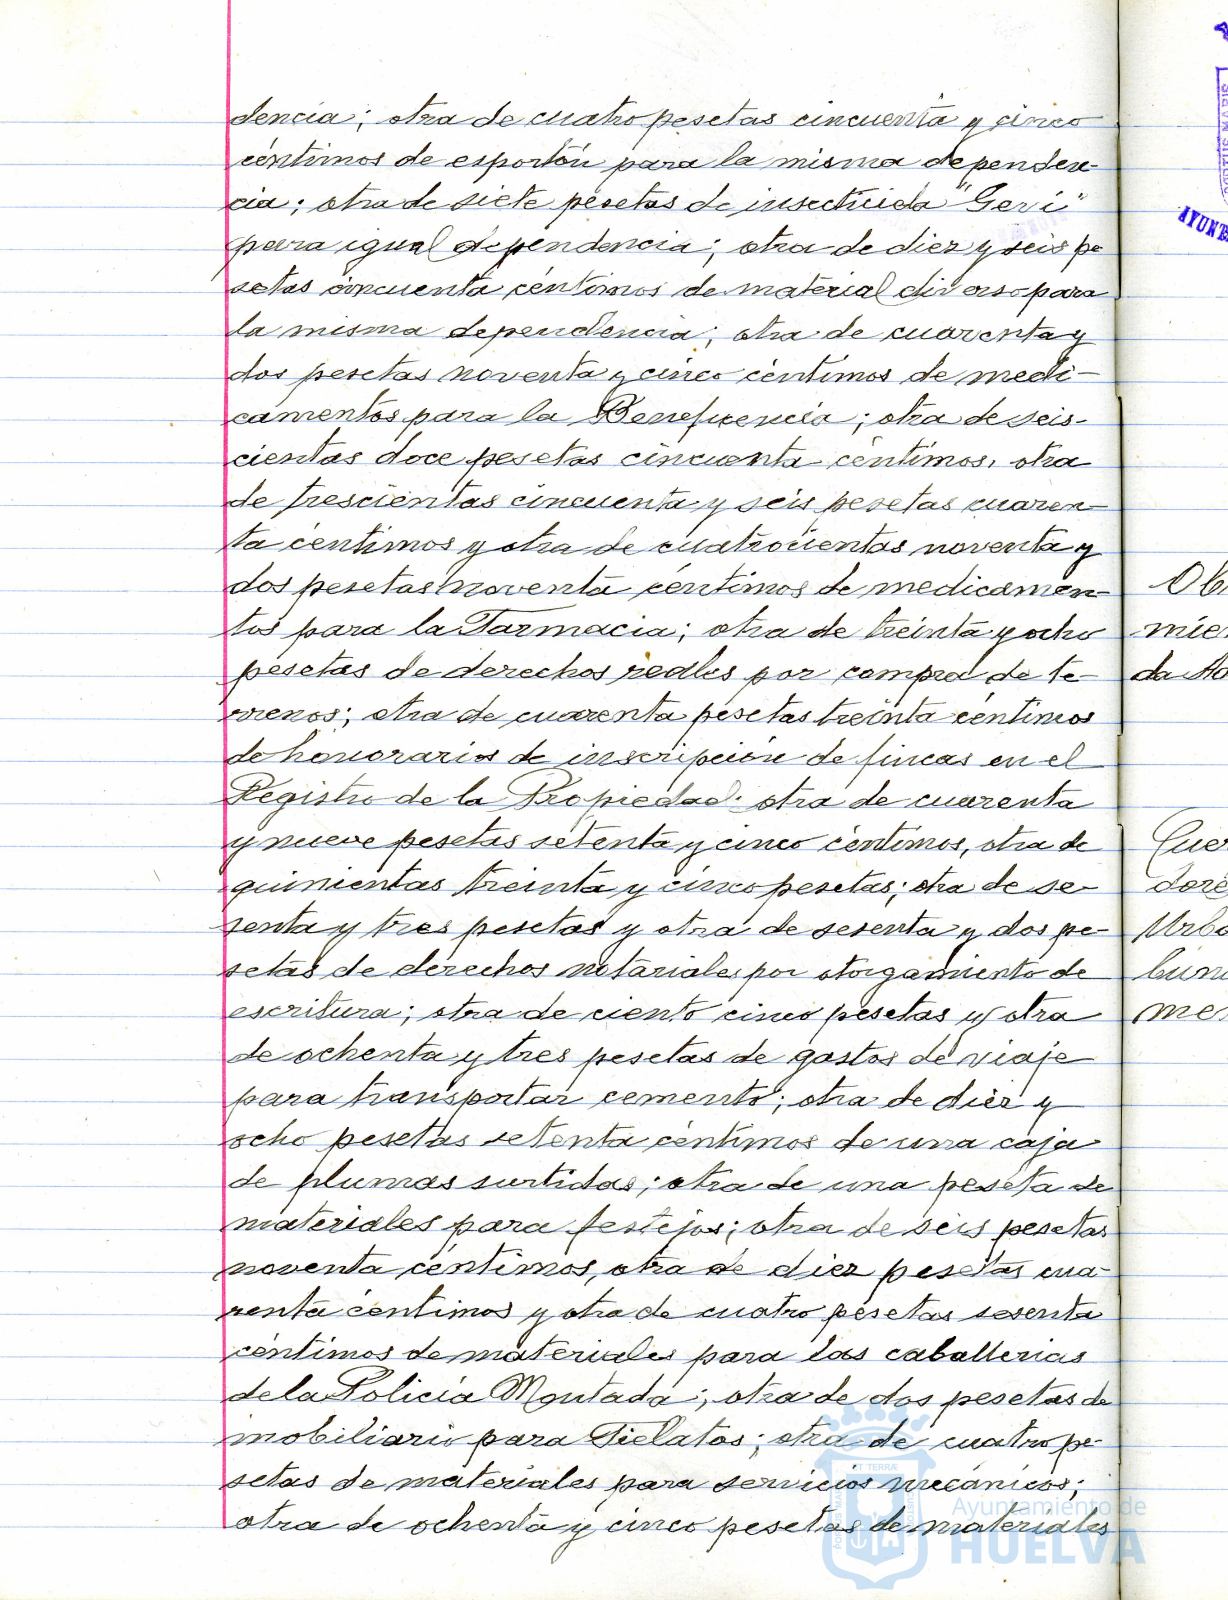 dencia; otra de cuatro pesetas cincuenta y cinco
céntimos de esportón para la misma dependen-
cia; otra de siete pesetas de insecticida "Geri"
para igual dependencia; otra de diez y seis pe-
setas cincuenta céntimos de material diverso para
la misma dependencia; otra de cuarenta y
dos pesetas noventa y cinco céntimos de medi-
camentos para la Beneficencia; otra de seis-
cientas doce pesetas cincuenta céntimos, otra
de trescientas cincuenta y seis pesetas cuaren-
ta céntimos y otra de cuatrocientas noventa y
dos pesetas noventa céntimos de medicamen-
tos para la Farmacia; otra de treinta y ocho
pesetas de derechos reales por compra de te-
rrenos; otra de cuarenta pesetas treinta céntimos
de honorarios de inscripción de fincas en el
Registro de la Propiedad; otra de cuarenta
y nueve pesetas setenta y cinco céntimos, otra de
quinientas treinta y cinco pesetas; otra de se-
senta y tres pesetas y otra de sesenta y dos pe-
setas de derechos notariales por otorgamiento de
escritura; otra de ciento cinco pesetas y otra
de ochenta y tres pesetas de gastos de viaje
para transportar cemento; otra de diez y
ocho pesetas setenta céntimos de una caja
de plumas surtidas; otra de una peseta de
materiales para festejos; otra de seis pesetas
noventa céntimos, otra de diez pesetas cua-
renta céntimos y otra de cuatro pesetas sesenta
céntimos de materiales para las caballerias
de la Policía Montada; otra de dos pesetas de
mobiliario para Fielatos; otra de cuatro pe-
setas de materiales para servicios mecánicos;
otra de ochenta y cinco pesetas de materiales
Ob
mie
da Ao
Cuer
dore
Urba
mer
AYUN
Ayuntamiento de
HUELVA